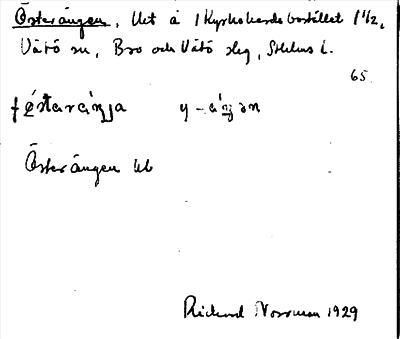 Österängen, Utt å 1 Kyrkoherdebostället 1 1/2,
Vätö sn, Bro och Vätö slg, Sthlms l.
65.
Österängen Ub
Rickard Norrman 1929